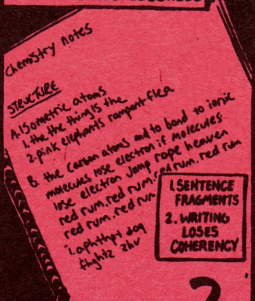 Chemistry notes
STRUCTURE
A. Isometric atoms
1. the the thing is the
2. pink elephants rampant flea
B. the carbon atoms and to bond to ionic
molecules lose electron if molecules
lose electron jump rope heaven
red rum. red rum. red rum. red rum
red rum. red rum
1. dog
flight2
1. SENTENCE
FRAGMENTS
2. WRITING
LOSES
COHERENCY
2